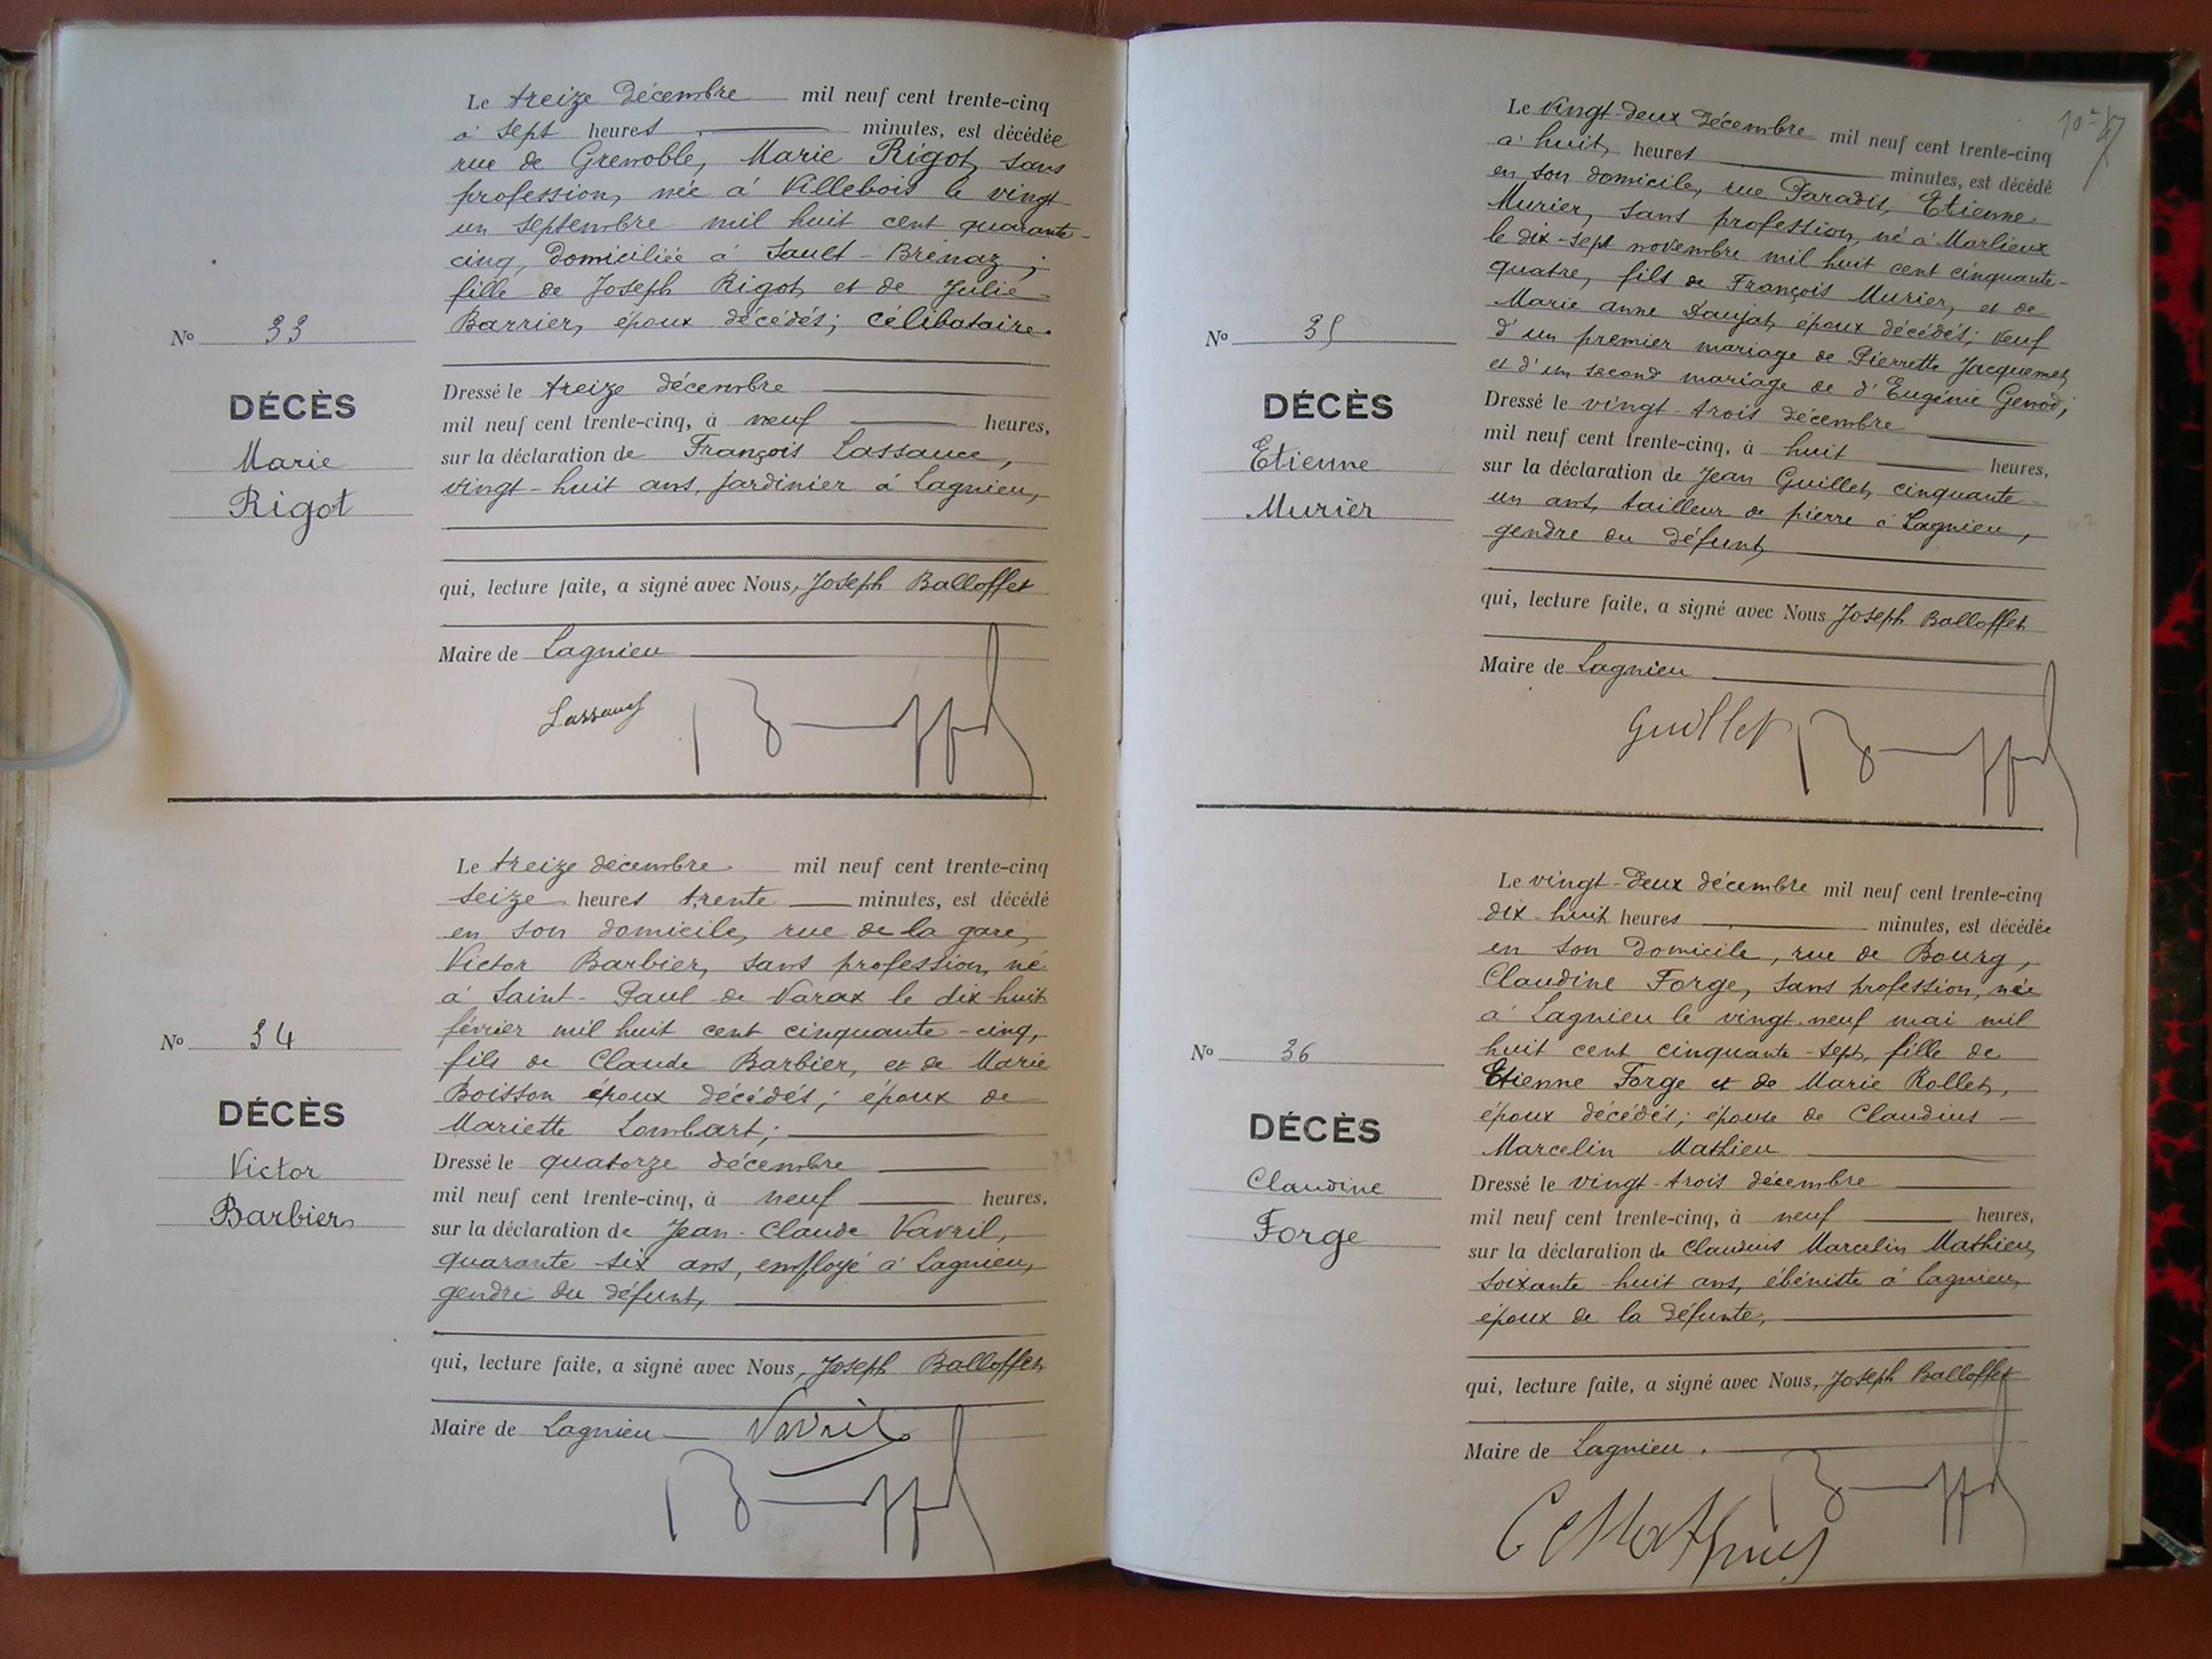 Le treize décembre mil neuf cent trente-cinq
à sept heures minutes, est décédée
rue de Grenoble, Marie Rigot, sans
profession, née à Villebois le vingt
un septembre mil huit cent quarante-
cinq, domiciliée à Sault-Brénaz ;
fille de Joseph Rigot, et de Julie
Barrier, époux décédés; célibataire.
No 33
DÉCÈS
Marie
Rigot
Dressé le treize décembre
mil neuf cent trente-cinq, à neuf heures,
sur la déclaration de François Lassauce,
vingt-huit ans, jardinier à Lagnieu,
qui, lecture faite, a signé avec Nous, Joseph Balloffet
Maire de Lagnieu
Le treize décembre mil neuf cent trente-cinq
seize heures trente minutes, est décédé
en son domicile, rue de la gare,
Victor Barbier, sans profession, né
à Saint-Paul-de Varax le dix huit
février mil huit cent cinquante-cinq,
fils de Claude Barbier, et de Marie
Boisson époux décédés; époux de
Mariette Lombart;
No 34
DÉCÈS
Victor
Barbier
Dressé le quatorze décembre
mil neuf cent trente-cinq, à neuf heures.
sur la déclaration de Jean-Claude Vavril,
quarante-six ans, employé à Lagnieu,
gendre du défunt,
qui, lecture faite, a signé avec Nous, Joseph Balloffet
Maire de Lagnieu Vavril
Le vingt-deux décembre mil neuf cent trente-cinq
à huit heures minutes, est décédé
en son domicile, rue Paradis, Etienne
Murier, sans profession, né à Marlieux
le dix-sept novembre mil huit cent cinquante-
quatre, fils de François Murier, et de
Marie anne Daujat, époux décédés; veuf
d'un premier mariage de Pierrette Jacquemet
et d'un second mariage de d'Eugénie Genod;
No 35
DÉCÈS
Etienne
Murier
Dressé le vingt-trois décembre
mil neuf cent trente-cinq, à huit heures,
sur la déclaration de Jean Guillet, cinquante
un ans, tailleur de pierre à Lagnieu,
gendre du défunt,
qui, lecture faite, a signé avec Nous Joseph Balloffet
Maire de Lagnieu
Guillet
Le vingt-deux décembre mil neuf cent trente-cinq
dix-huit heures minutes, est décédée
en son domicile, rue de Bourg,
Claudine Forge, sans profession, née
à Lagnieu le vingt-neuf mai mil
huit cent cinquante-sept, fille de
Etienne Forge et de Marie Rollet,
époux décédés; épouse de Claudius
Marcelin Mathieu
No 36
DÉCÈS
Claudine
Forge
Dressé le vingt-trois décembre
mil neuf cent trente-cinq, à neuf heures,
sur la déclaration de Claudius Marcelin Mathieu
soixante-huit ans, ébéniste à Lagnieu,
époux de la défunte,
qui, lecture faite, a signé avec Nous, Joseph Balloffet
Maire de Lagnieu.